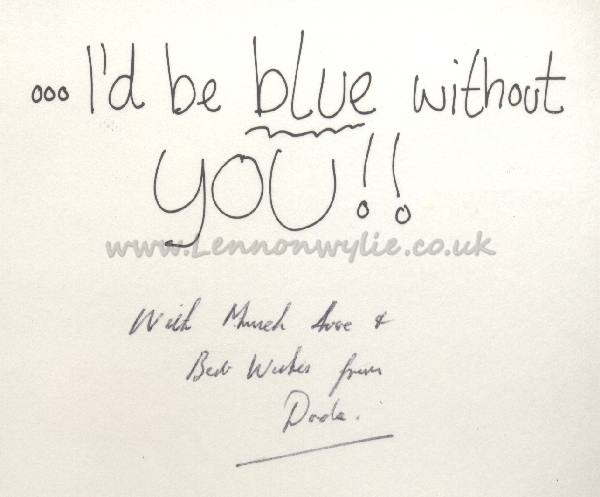 ...I'd be blue without
YOU!!
www.Lennonwylie.co.uk
With Much love &
Best Wishes from